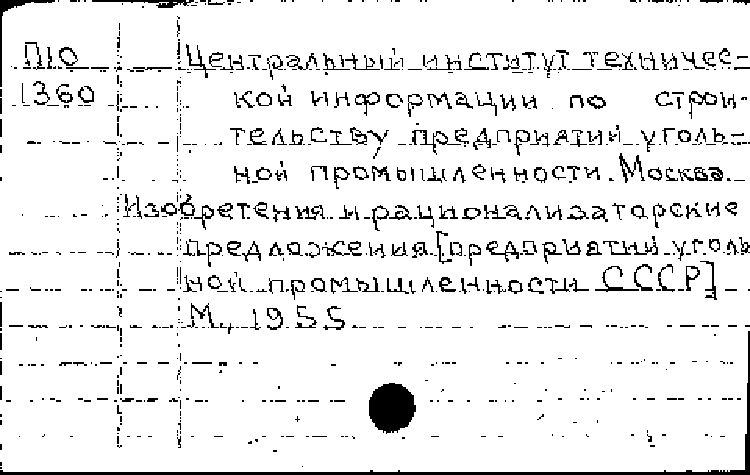 П10 Центральный институт техничес-
1360 кой информации по строи-
тельству предприятий уголь-
ной промышленности. Москва.
Изобретения и рационализаторские
предложения [предприятий уголь
ной промышленности СССР]
М., 1955.